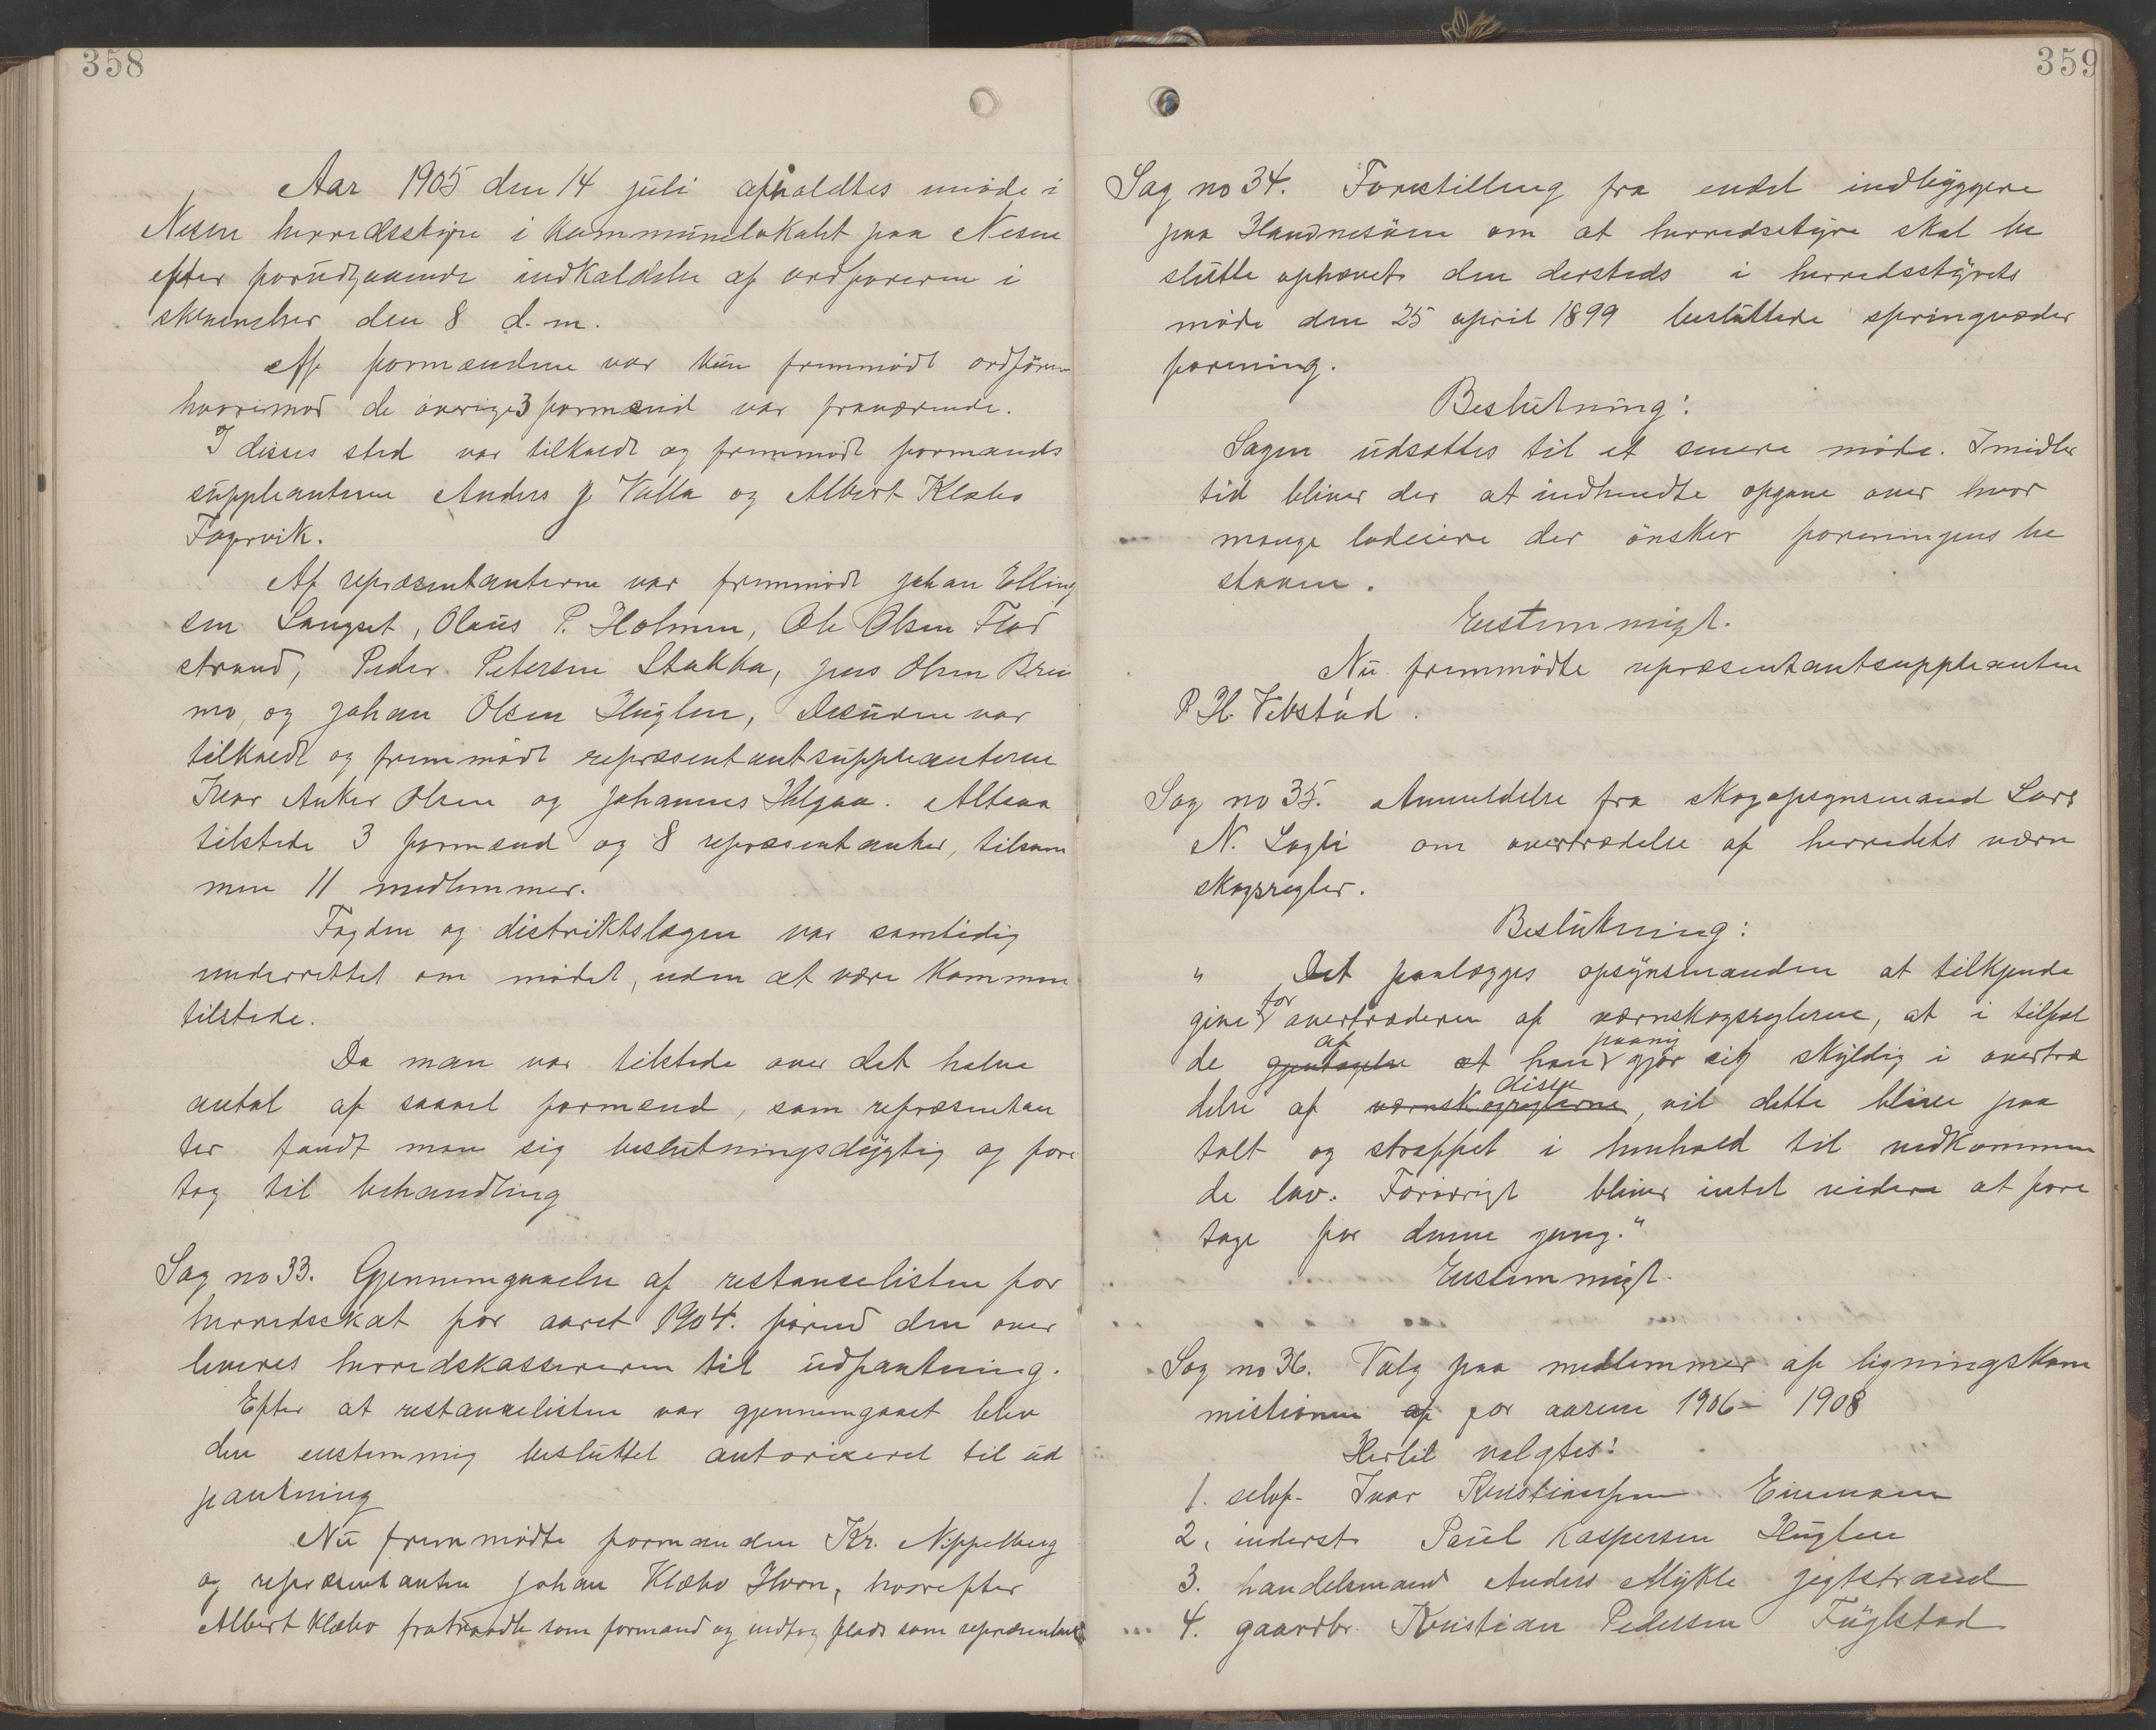 358
Aar 1905 den 14 juli afholdtes møde i
Nesne herredsstyre i kommunelokalet paa Nesne
efter forudgaaende indkaldelse af ordføreren i
skrivelser den 8 d.m.
Af formændene var kun fremmødt ordføren
hvorimod de øvrige 3 formænd var fraværende.
I disses sted var tilkaldt og fremmødt formands
suppleanterne Anders J Valla og Albert Klæbo
Fagervik.
Af repræsentanterne var fremmødt Johan Elling
sen Langset, Olaus P. Holmen, Ole Olsen Flod
strand, Peder Petersen Stokka, Jens Olsen Brei
mo, og Johan Olsen Huglen, Desuden var
tilkaldt og fremmødt repræsentantsuppleanterne
Ivar Anker Olsen og Johannes Helgaa. Altsaa
tilstede 3 formænd og 8 repræsentanter, tilsam
men 11 medlemmer.
Fogden og distriktslægen var samtidig
underrettet om mødet, uden at være kommen
tilstede.
Da man var tilstede over det halve
antal af saavel formænd, som repræsentan
ter fandt man sig beslutningsdygtig og fore
tog til behandling
Sag no 33. Gjennemgaaelse af restanselisten for
herredsskat for aaret 1904. førend den over
leveres herredskassereren til udpantning.
Efter at restanselisten var gjennemgaaet blev
den enstemmig besluttet autoriseret til ud
pantning
Nu fremmødte formanden Kr. Nippelberg
og repræsentanten Johan Klæbo Horn, hvorefter
Albert Klæbo fratraadte som formand og indtog plads som repræsentant
359
Sag no 34. Forestilling fra endel indbyggere
paa Handnesøen om at herredsstyre skal be
slutte ophævet den dersteds i herredsstyrets
møde den 25 april 1899 besluttede springvæder
forening.
Beslutning:
Sagen udsættes til et senere møde. Imidler
tid bliver der at indhendte opgave over hvor
mange lodeiere der ønsker foreningens be
staaen.
Enstemmigt.
Nu fremmødte repræsentantsuppleanten
P. H. Vebstad.
Sag no 35. Anmeldelse fra skogopsynsmand Lars
N. Sagli om overtrædelse af herredets værn
skogsregler.
Beslutning:
" Det paalægges opsynsmanden at tilkjende
give for overtræderen af værnskogsreglerne, at i tilfæl
de gjentagelse af at han paany gjør sig skyldig i overtræ
delse af værnskogreglerne disse, vil dette blive paa
talt og straffet i henhold til vedkommen
de lov. Forøvrigt bliver intet videre at fore
tage for denne gang."
Enstemmigt.
Sag no 36. Valg paa medlemmer af ligningskom
missionen af for aarene 1906 - 1908
Hertil valgtes:
1. selvf. Ivar Kristiansen
2. inderst Paul Kaspersen Huglen
3. handelsmand Anders Mykle Jegtstrand
4. gaardbr. Kristian Pedersen Fuglstad